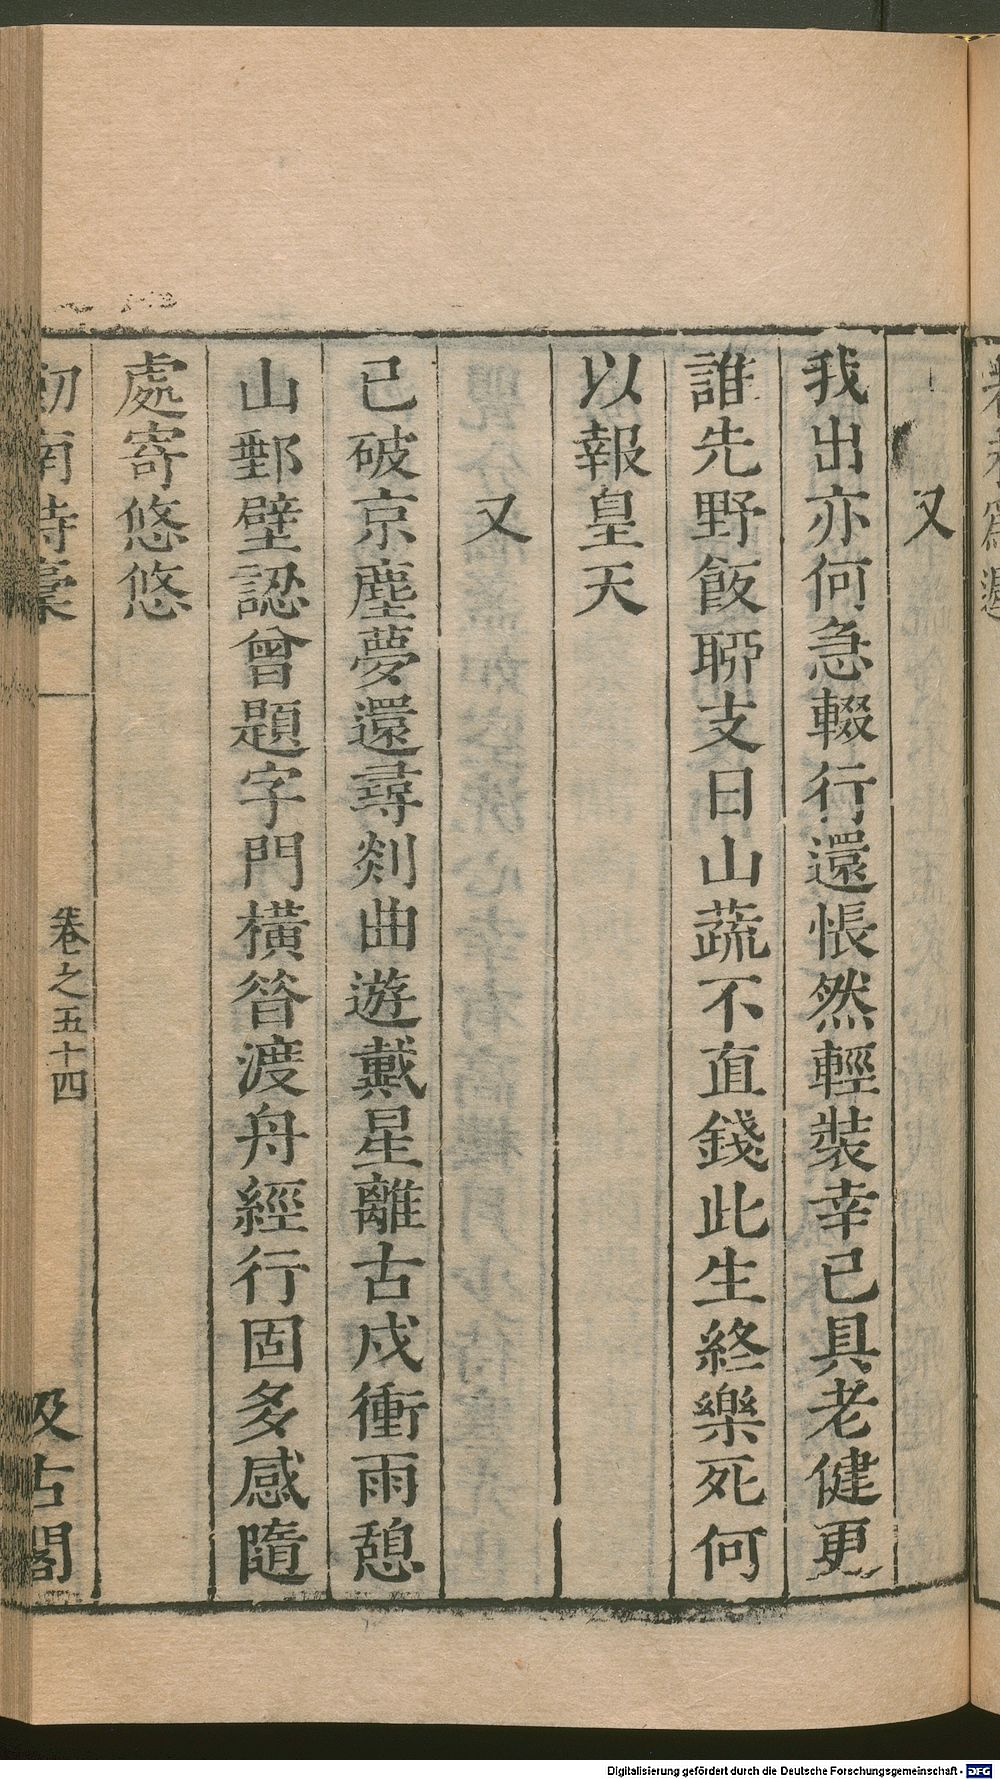 又
我出亦何急輟行還悵然輕裝幸已具老健更
誰先野飯聊支日山蔬不直錢此生終樂死何
以報皇天
又
已破京塵夢還尋剡曲遊戴星離古戍衝雨憩
山郵壁認曾題字門橫昝渡舟經行固多感隨
處寄悠悠
劒南詩稾
卷之五十四
汲古閣
Digitalisierung gefördert durch die Deutsche Forschungsgemeinschaft - DFG